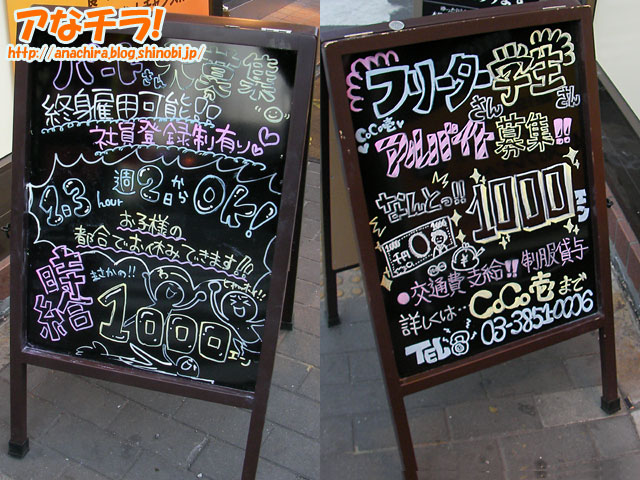 アなチラ!
http://anachira.blog.shinobi.jp/
パートさん大募集
終身雇用可能品
社員登録制有り♡
1日3hour 週2日からOK!
お子様の
都合でお休みできます!!
時給
まさかの!!
1000エン
フリーターさん学生さん
CoCo壱
アルバイト募集!!
なんとっ!!
1000エン
1000
千円
●交通費支給!! 制服貸与
詳しくは・CoCo壱まで
TEL 03-3851-0006